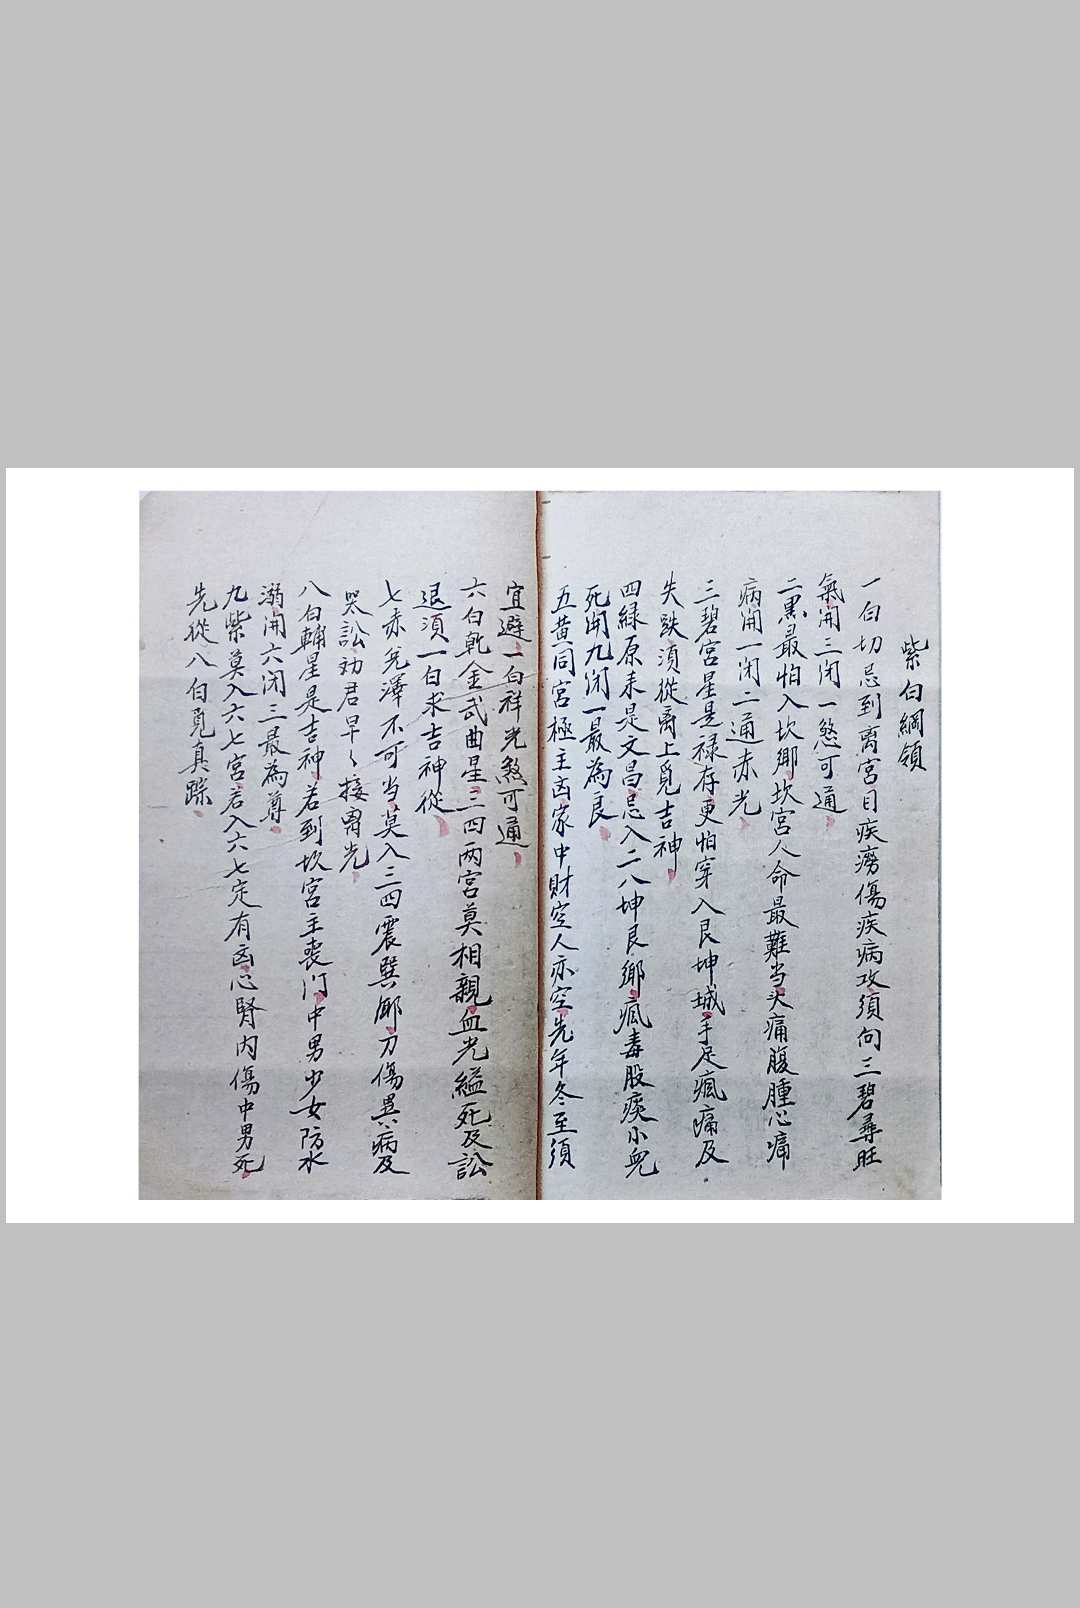 紫白綱領
一白切忌到离宮目疾癆傷疾病攻須向三碧尋旺
氣開三闭一煞可通
二黑最怕入坎鄉坎宮人命最難当头痛腹腫心痛
病開一闭二通赤光
三碧宮星是禄存更怕穿入艮坤城手足瘋痛及
失跌須從离上覓吉神
四緑原来是文昌忌入二八坤艮鄉瘋毒股痰小兒
死開九闭一最為良
五黄同宮極主凶家中財空人亦空先年冬至須
宜避一白祥光煞可通
六白乾金武曲星三四两宮莫相親血光縊死及訟
退須一白求吉神從
七赤兌澤不可当莫入三四震巽鄉刀傷異病及
哭訟劝君早〻接霄光
八白輔星是吉神若到坎宮主喪门中男少女防水
溺開六闭三最為尊
九紫莫入六七宮若入六七定有凶心腎内傷中男死
先從八白覓真踪